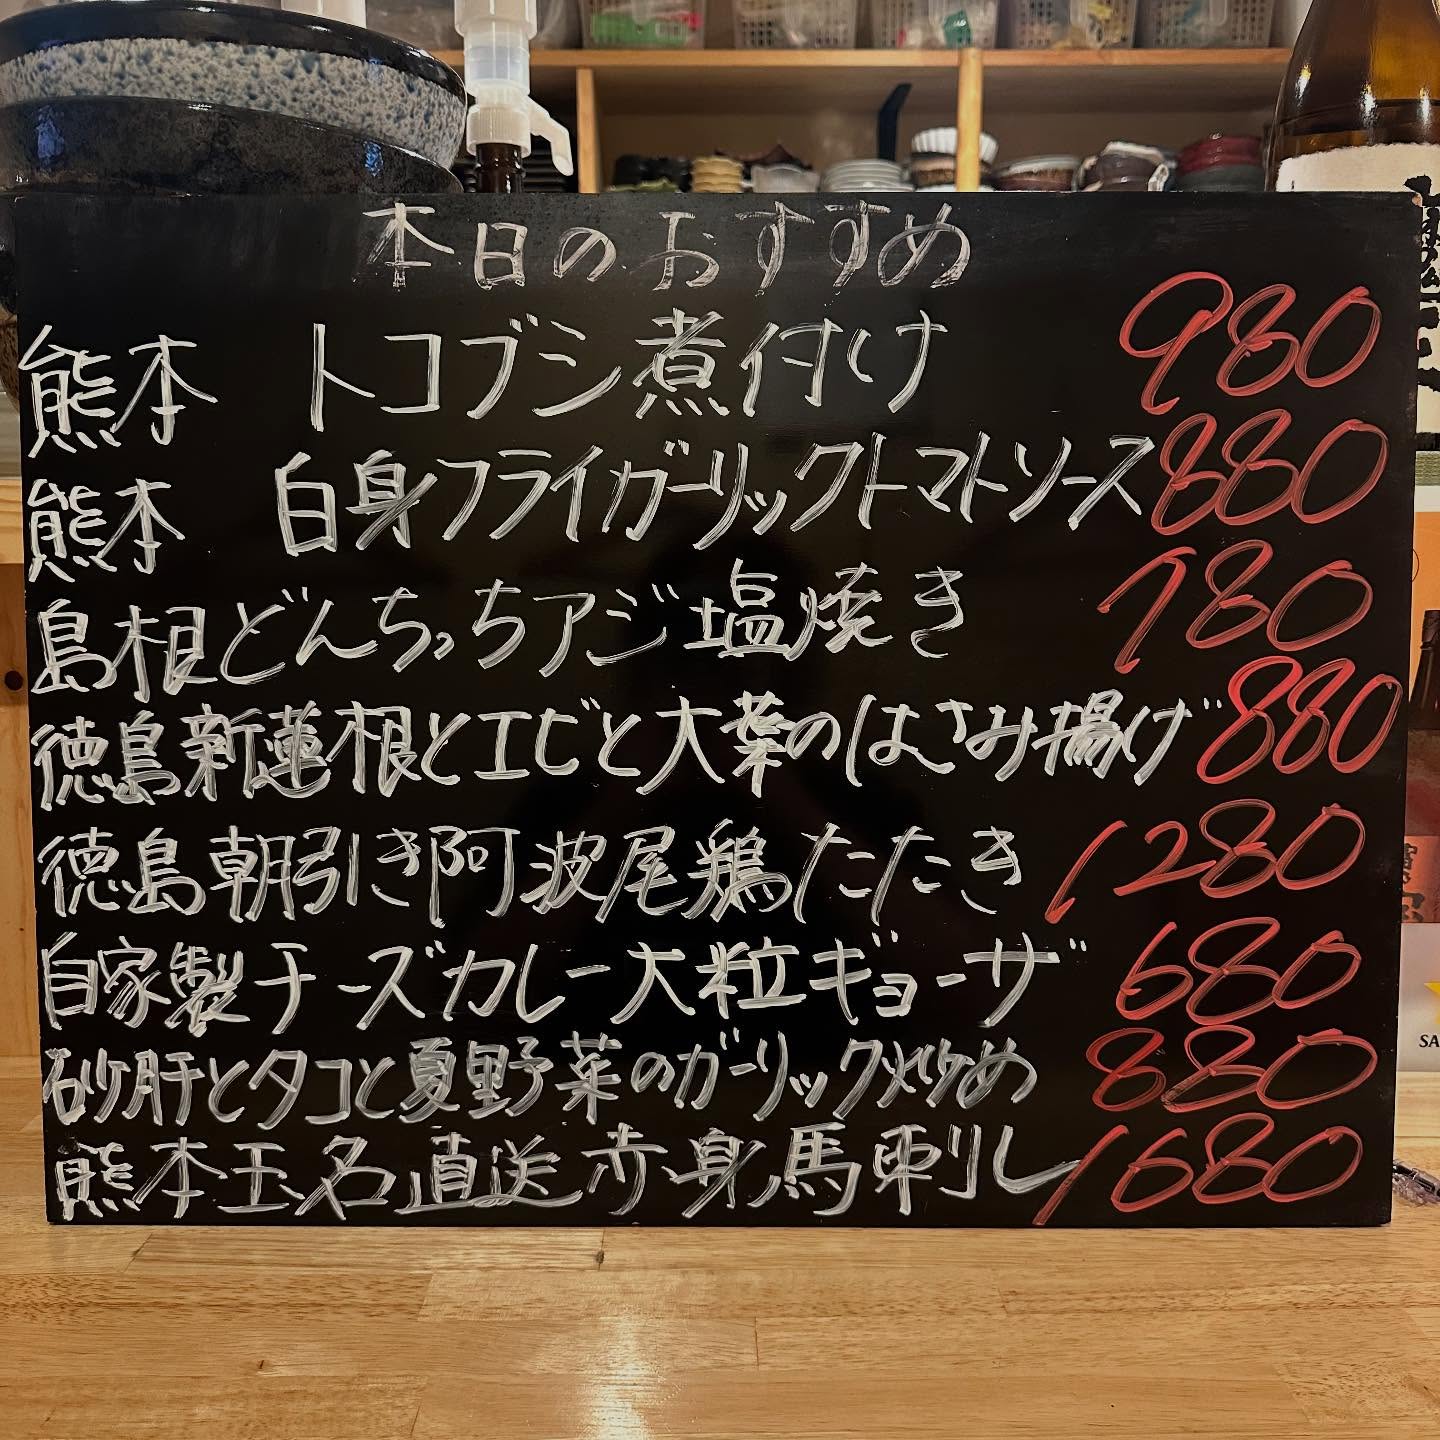 本日のおすすめ
熊本 トコブシ煮付け 980
熊本 白身フライガーリックトマトソース 880
島根どんちっちアジ塩焼き 780
徳島新蓮根とエビと大葉のはさみ揚げ 880
徳島朝引き阿波尾鶏たたき 1280
自家製チーズカレー大粒ギョーザ 680
砂肝とタコと夏野菜のガーリック炒め 880
熊本玉名直送赤身馬刺し 1680
SA